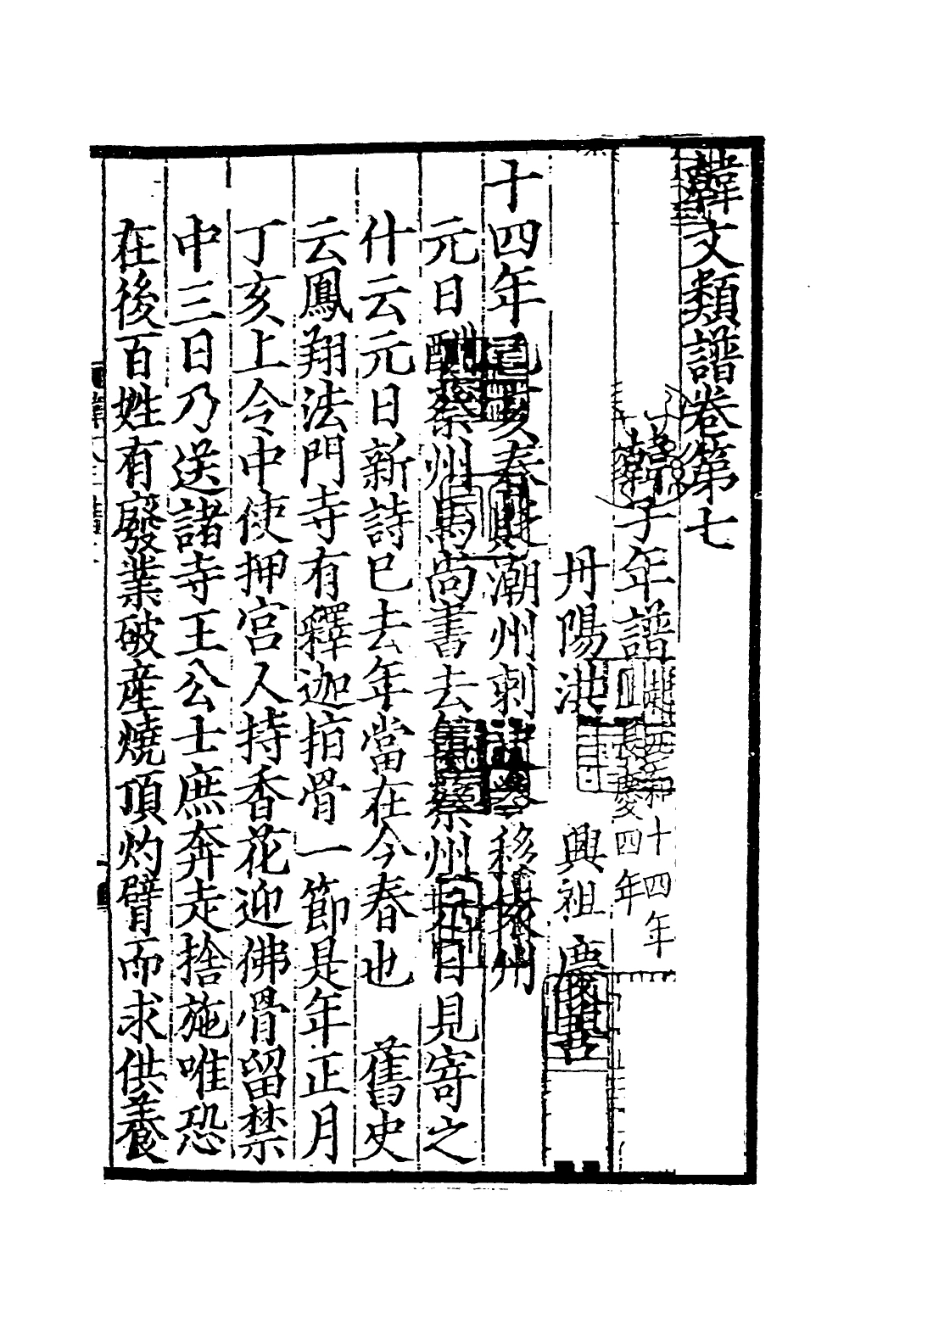 韓文類譜卷第七
韓子年譜
元和十四年
長慶四年
丹陽洪興祖慶善
十四年己亥春貶潮州刺史冬移袁州
元日酬蔡州馬尚書去年蔡州元日見寄之
什云元日新詩已去年當在今春也 舊史
云鳳翔法門寺有釋迦指骨一節是年正月
丁亥上令中使押宮人持香花迎佛骨留禁
中三日乃送諸寺王公士庶奔走捨施唯恐
在後百姓有廢業破產燒頂灼臂而求供養